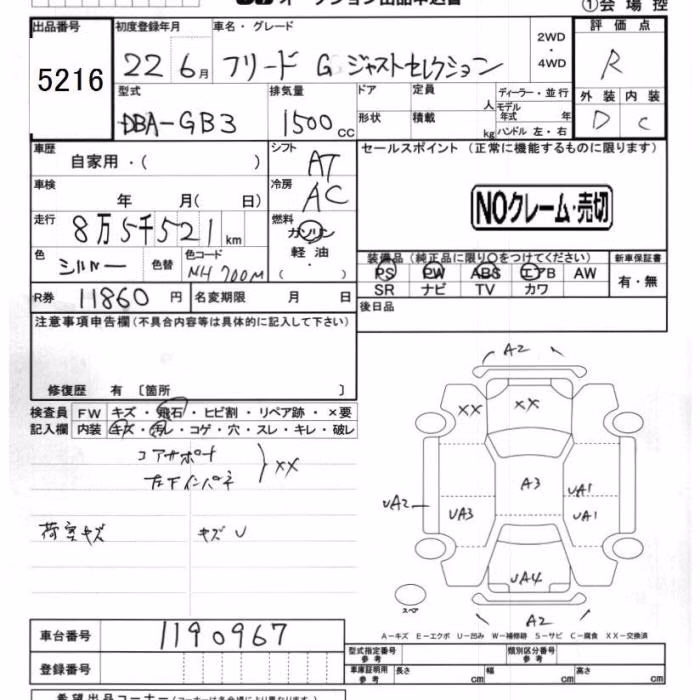 ①会場控
出品番号 初度登録年月 車名・グレード 2WD・4WD 評価点
5216 22 6月 フリード G ジャストセレクション R
型式 排気量 ドア 定員 人 ディーラー・並行 外装 内装
DBA-GB3 1500cc 形状 積載 kg モデル年式 年 ハンドル 左・右 D C
車歴 自家用・( ) シフト AT セールスポイント (正常に機能するものに限ります)
車検 年 月( 日) 冷房 AC NOクレーム・売切
走行 8万5千521km 燃料 ガソリン・軽油・( )
色 シルバー 色替 色コード NH700M 装備品 (純正品に限り○をつけてください) 新車保証書
PS PW ABS エアB AW 有・無
SR ナビ TV カワ
R券 11860円 名変期限 月 日 後日品
注意事項申告欄 (不具合内容等は具体的に記入して下さい)
修復歴 有 〔箇所 〕
検査員記入欄 FW キズ・飛石・ヒビ割・リペア跡・×要
内装 キズ・汚レ・コゲ・穴・スレ・キレ・破レ
コアサポート
左下インパネ
XX
荷室キズ キズU
A2
XX XX
A3 UA1
UA2 UA3 UA1
UA4
スペア A2
A-キズ E-エクボ U-凹み W-補修跡 S-サビ C-腐食 XX-交換済
車台番号 1190967
登録番号
型式指定番号 参考 類別区分番号 参考
車庫証明用 参考 長さ cm 幅 cm 高さ cm
希望出品コーナー